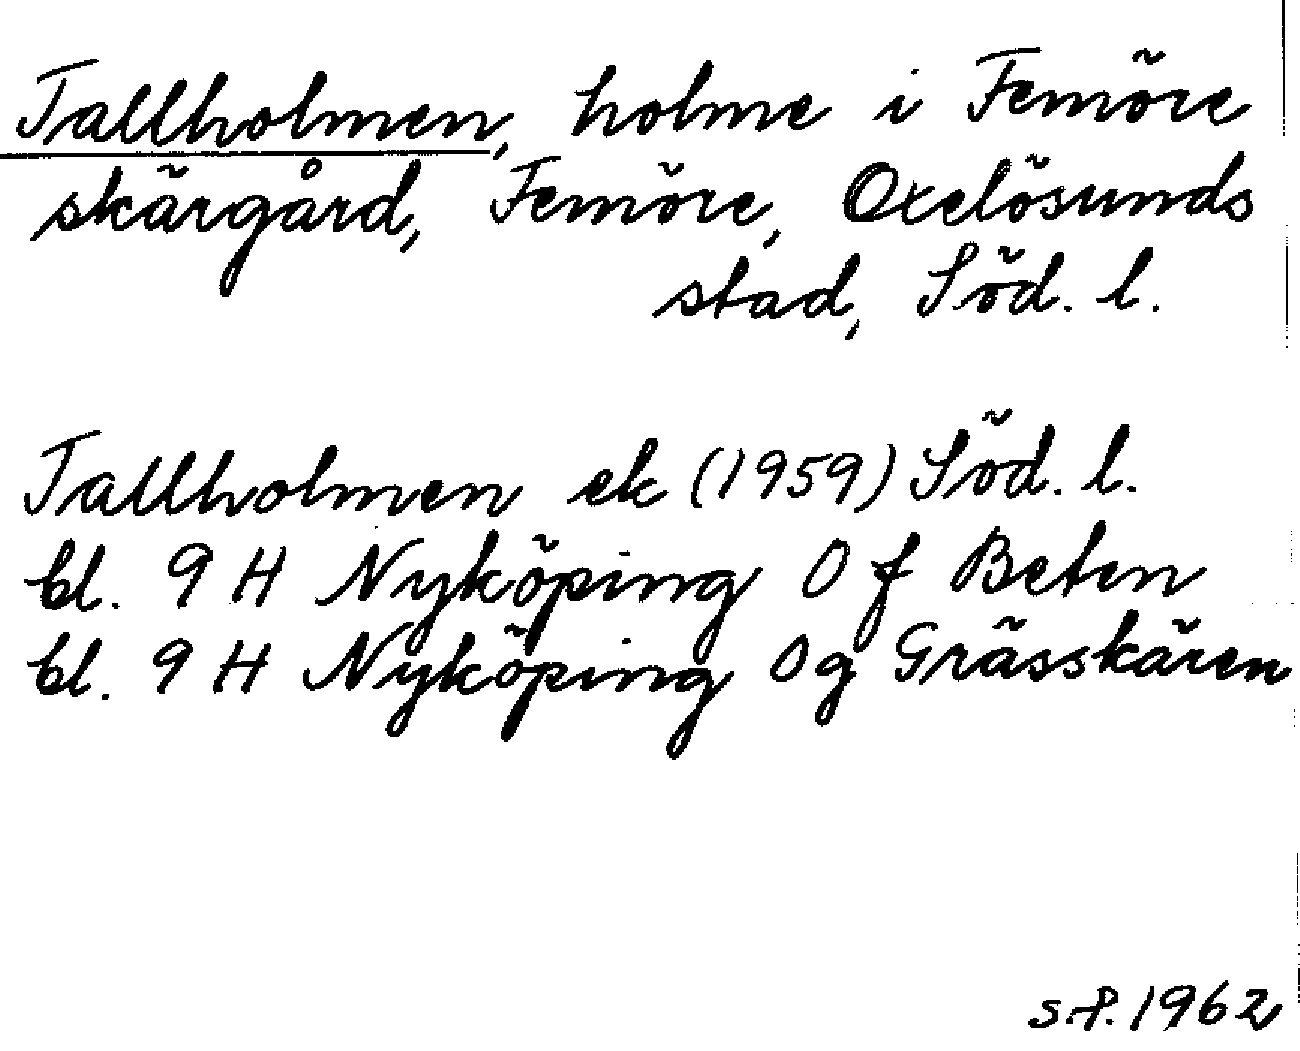 Tallholmen, holme i Femöre
skärgård, Femöre, Oxelösunds
stad, Söd. l.
Tallholmen ek (1959) Söd. l.
bl. 9 H Nyköping 0 f Beten
bl. 9 H Nyköping 0g Grässkären
S.P. 1962